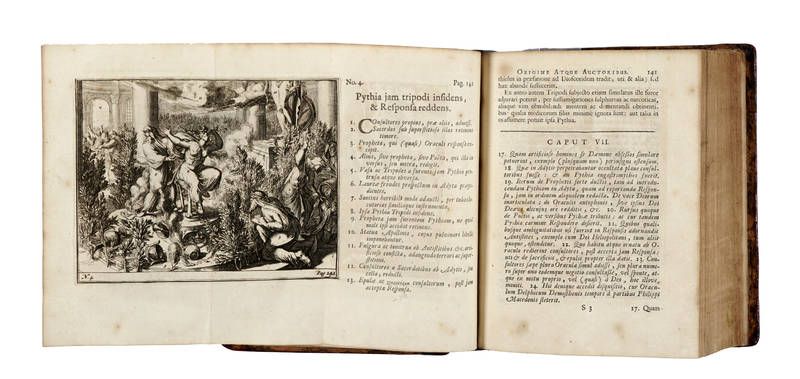 N. 4.
Pag. 141
No. 4.
Pag. 141
Pythia jam tripodi insidens,
& Responsa reddens.
1. Consultores propius, præ aliis, admissi.
2. Sacerdos sub superstitioso illas retinens
timore.
3. Propheta, qui (quasi) Oraculi responsa ex-
cipit.
4. Alius, sive propheta, sive Poëta, qui illa in
versus, seu metra, redigit.
5. Vasa ac Tripodes a furente jam Pythia pro
statua atque obversa.
6. Laureæ frondes prospectum in Adyta præ-
cludentes.
7. Sonitus horribili modo adaucti, per tubas
tortarias similiaque instrumenta.
8. Ipsa Pythia Tripodi insidens.
9. Propheta jam furentem Pythiam, ne qui
male ipsi accidat retinens.
10. Statua Apollinis, cujus pulvinari libelli
imponebantur.
11. Fulgura ac tonitrua ab Antistitibus & ar-
tificiis conficta, ad augendum terrori ac super-
stitioni.
12. Consultores a Sacerdotibus ab Adytis, in
cella, reducti.
13. Epulæ ac consultorum, post jam
accepta Responsa.
ORIGINE ATQUE AUCTORIBUS. 141
thiolus in præfatione ad Dioscoridem tradit, uti & alia; sed
hæc abunde suffecerint.
Ex antro autem Tripodi subjecto etiam simulatus ille furor
adjuvari potuit, per suffumigationes sulphureas ac narcoticas,
aliaque vim obnubilandi mentem ac dementandi obtinenti-
bus quæ medicorum filiis minime ignota sunt: aut talia in
os assumere potuit ipsa Pythia.
CAPUT VII.
17. Quam artificiose homines se Dæmone obsessos simulare
potuerint, exemplo (plusquam uno) perinsigni ostensum.
18. Quæ in Adytis perpetrabantur occultata plane consul-
toribus fuisse; & an Pythia engastrimythos fuerit.
19. Iterum de Prophetis sorte ductis, tam ad introdu-
cendam Pythiam in Adyta, quam ad reportanda Respon-
sa, jam in ordinem aliqualem redacta. De voce Deorum
inarticulata; & Oraculi antiphonis, sive ipsius Dei
Deæve alterius ore redditis, &c. 20. Rursus quoque
de Poëtis, ac versibus Pythiæ tributis; ac cur tandem
Pythia carmine Respondere desierit. 21. Quibus quali-
busque ambiguitatibus usi fuerint in Responsis adornandis
Antistites, exemplo cum Dei Heliopolitani, tum aliis
quoque, ostenditur. 22. Quo habitu atque ornatu ab O-
raculo redierint consultores, post accepta jam Responsa:
uti & de sacrificiis, & epulis propter illa datis. 23. Con-
sultores sæpe plura Oracula simul adiisse, seu plura nume-
ro super uno eodemque negotio consultasse, vel sponte, at-
que ex motu proprio, vel (quasi) a Deo, hoc illove,
moniti. 24. Hisi demque accedit disquisitio, cur Oracu-
lum Delphicum Demosthenis tempore a partibus Philippi
Macedonis steterit.
S 3
17. Quam